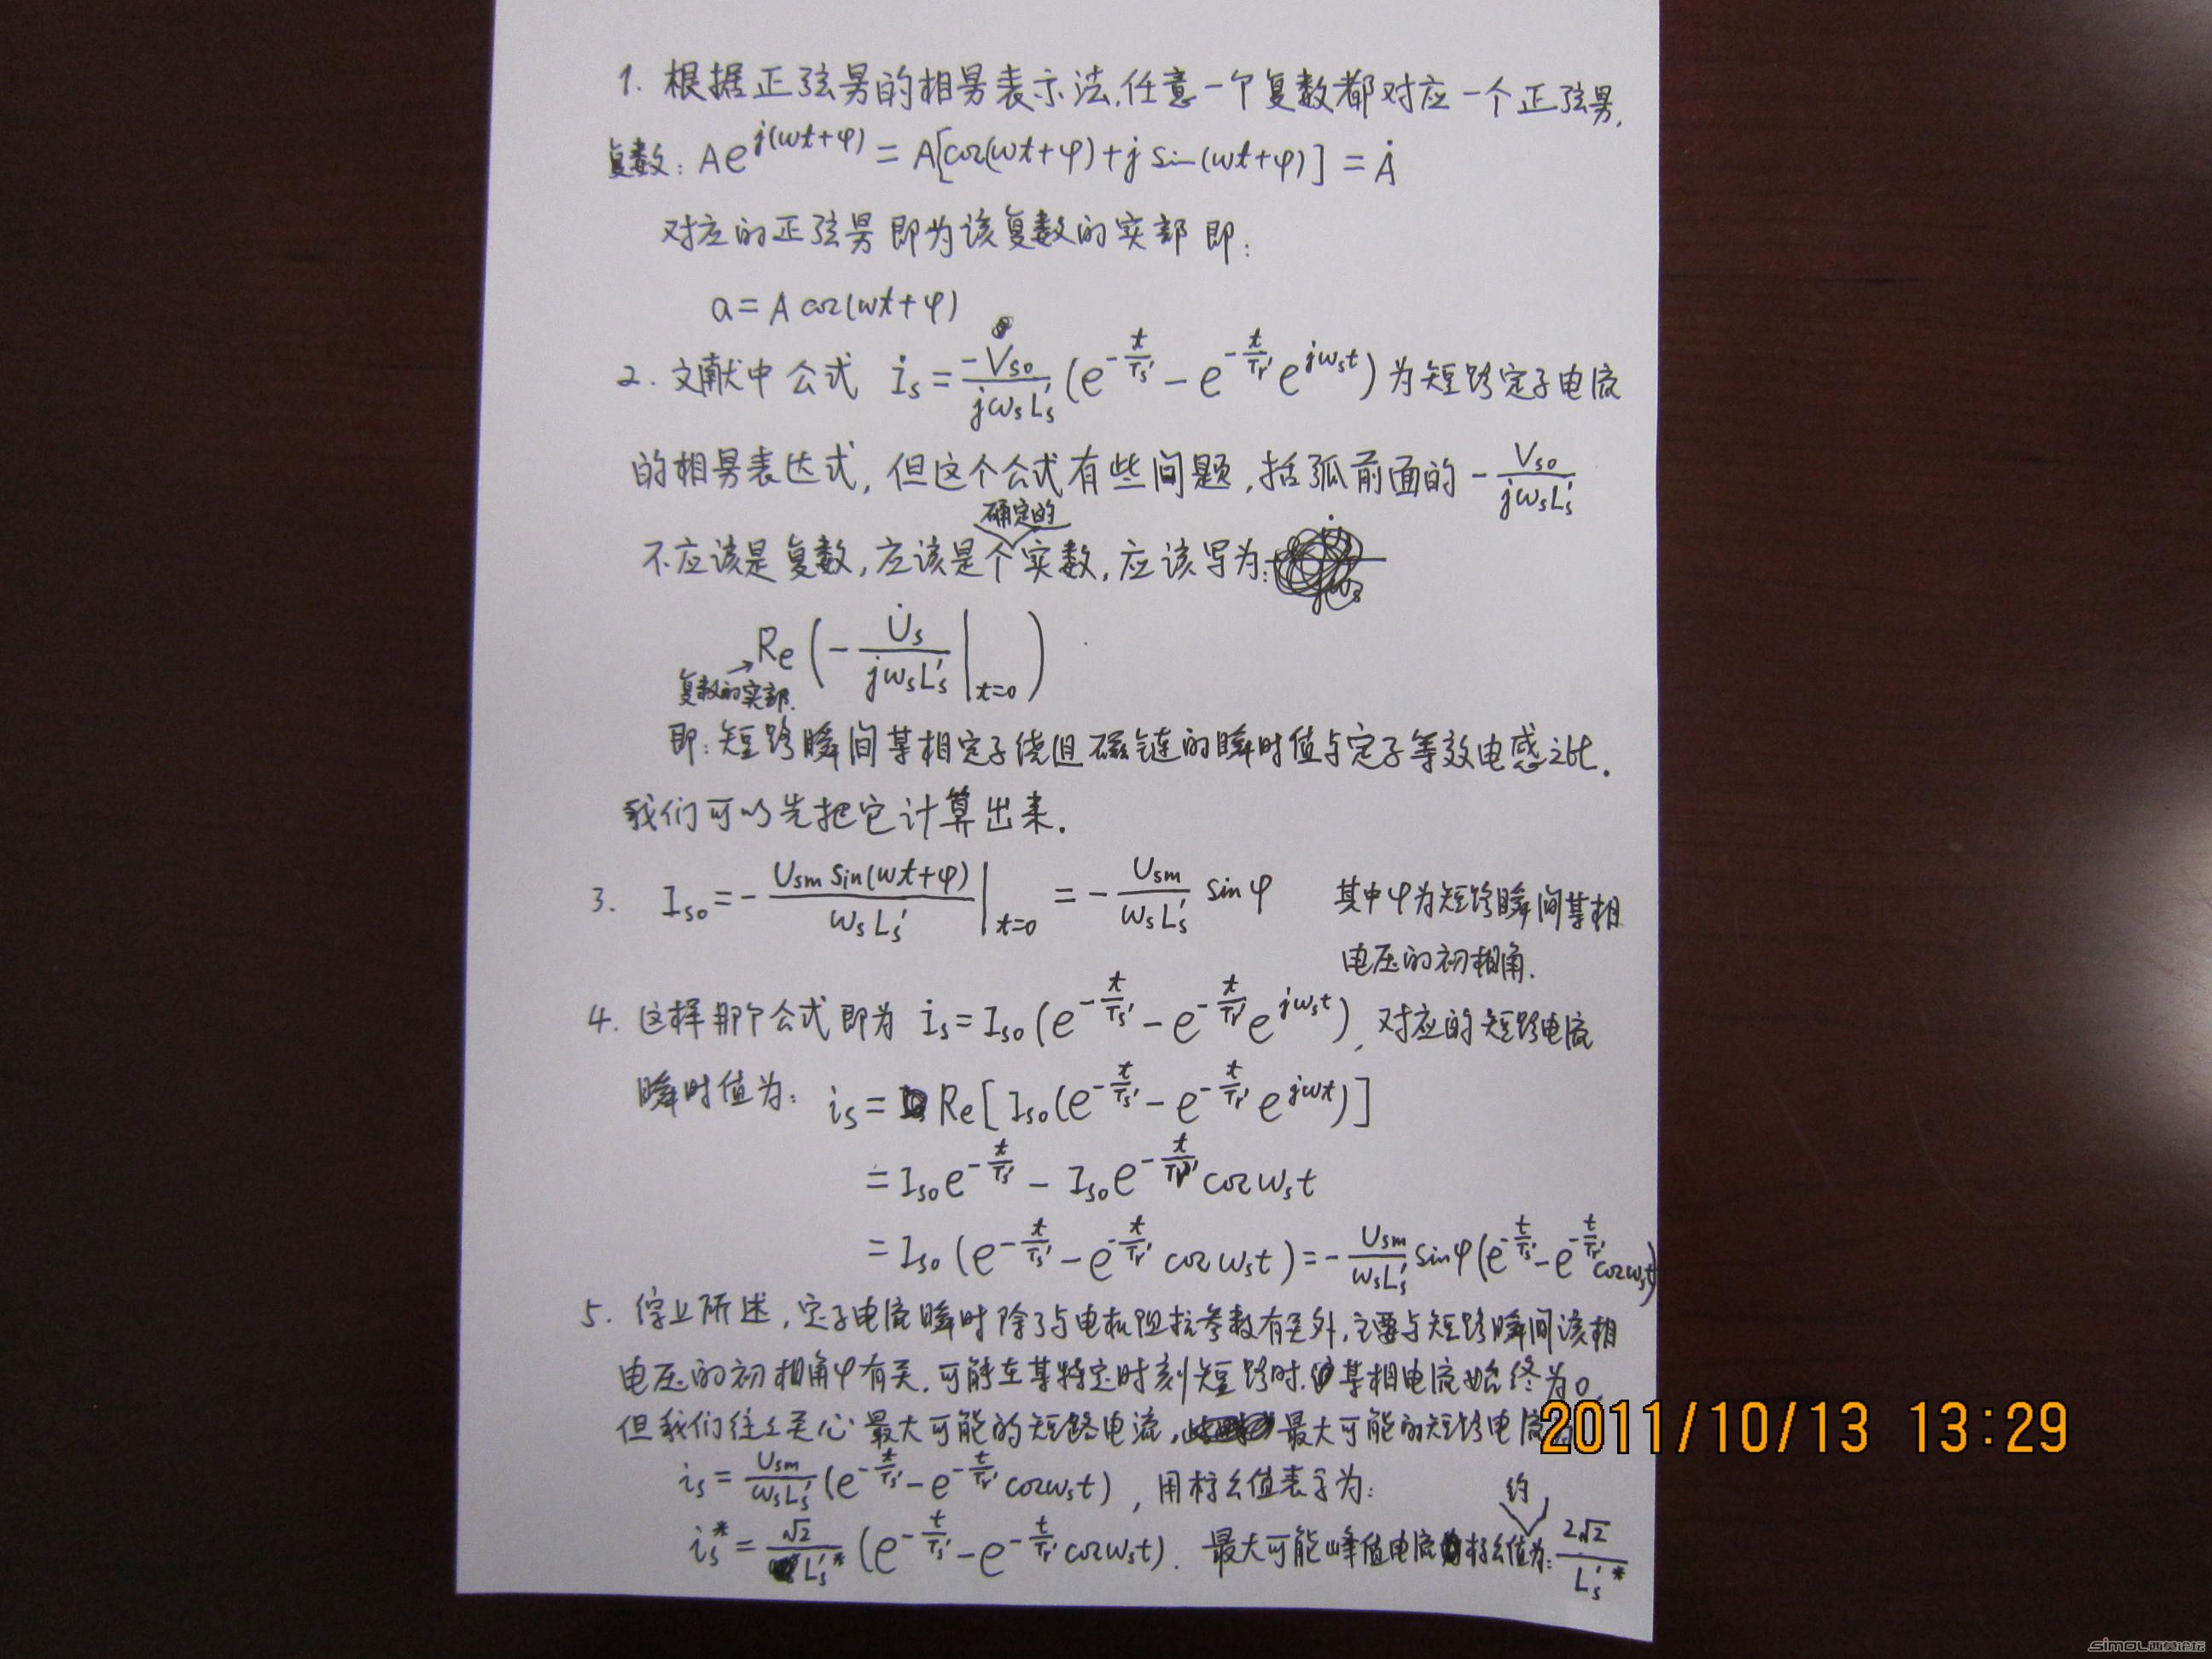 1. 根据正弦量的相量表示法,任意一个复数都对应一个正弦量,
复数: Ae^{j(ωt+φ)} = A[cos(ωt+φ)+j sin(ωt+φ)] = Ȧ
对应的正弦量即为该复数的实部即:
a = A cos(ωt+φ)
2. 文献中公式 i̇s = -Vso/(jωsLs′) (e^{-t/Ts′} - e^{-t/Tr′} e^{jωst}) 为短路定子电流
的相量表达式, 但这个公式有些问题, 括弧前面的 -Vso/(jωsLs′)
不应该是复数, 应该是个确定的实数, 应该写为:
Re(-U̇s/(jωsLs′)|t=0)
复数的实部.
即: 短路瞬间某相定子绕组磁链的瞬时值与定子等效电感之比.
我们可以先把它计算出来.
3. Iso = -Usm sin(ωt+φ)/(ωsLs′)|t=0 = -Usm/(ωsLs′) sinφ 其中φ为短路瞬间某相
电压的初相角.
4. 这样那个公式即为 i̇s = Iso(e^{-t/Ts′} - e^{-t/Tr′} e^{jωst}), 对应的短路电流
瞬时值为: is = Re[Iso(e^{-t/Ts′} - e^{-t/Tr′} e^{jωt})]
= Iso e^{-t/Ts′} - Iso e^{-t/Tr′} cosωst
= Iso(e^{-t/Ts′} - e^{-t/Tr′} cosωst) = -Usm/(ωsLs′) sinφ(e^{-t/Ts′} - e^{-t/Tr′} cosωst)
5. 综上所述, 定子电流瞬时除了与电机阻抗参数有关外, 主要与短路瞬间该相
电压的初相角φ有关, 可能在某特定时刻短路时, 某相电流始终为0.
但我们往往关心最大可能的短路电流, 最大可能的短路电流
is = Usm/(ωsLs′) (e^{-t/Ts′} - e^{-t/Tr′} cosωst), 用标幺值表示为:
is* = √2/Ls′* (e^{-t/Ts′} - e^{-t/Tr′} cosωst). 最大可能峰值电流标幺值约为: 2√2/Ls′*
2011/10/13 13:29
simol西莫论坛